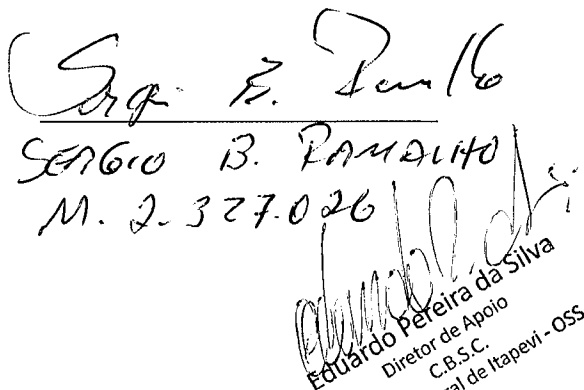 Sergio B. Ramalho
SERGIO B. RAMALHO
M. 2.327.026
Eduardo Pereira da Silva
Diretor de Apoio
C.B.S.C.
ral de Itapevi - OSS